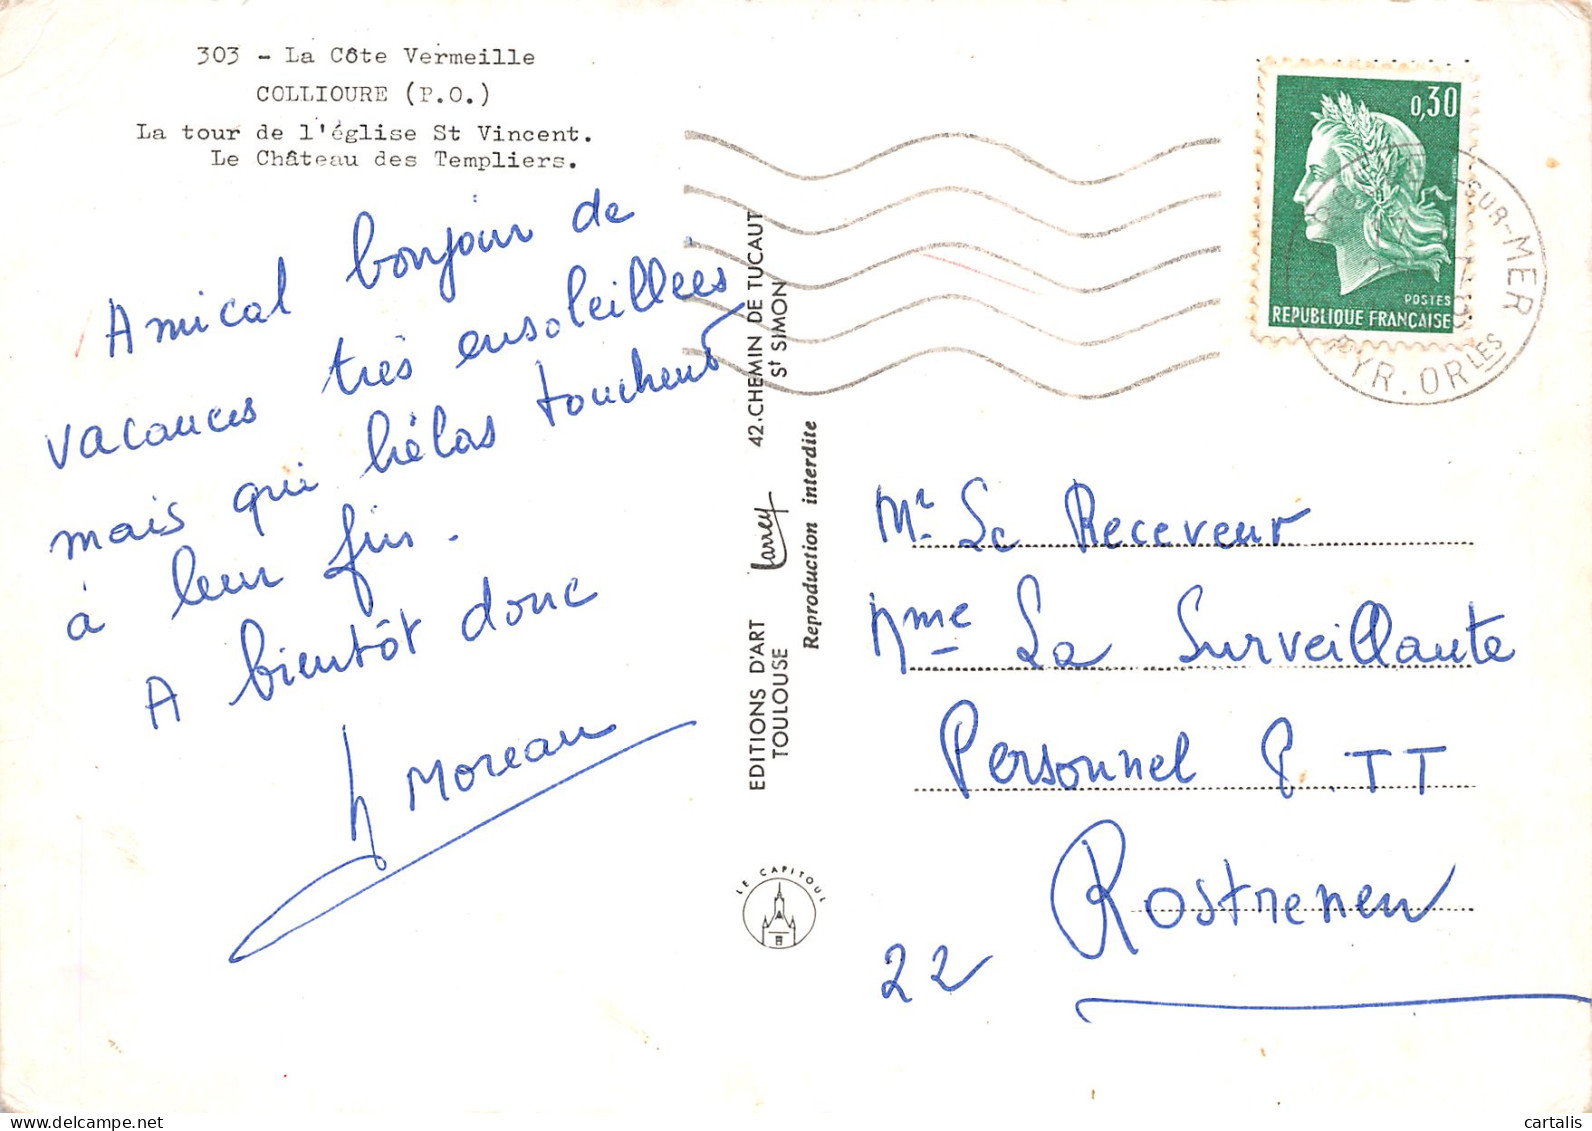 303 - La Côte Vermeille
COLLIOURE (P.O.)
La tour de l'église St Vincent.
Le Château des Templiers.
Amical bonjour de
vacances très ensoleillées
mais qui hélas touchent
à leur fin.
A bientôt donc
Moreau
EDITIONS D'ART Larrey 42.CHEMIN DE TUCAUT
TOULOUSE St SIMON
Reproduction interdite
LE CAPITOUL
0,30
POSTES
REPUBLIQUE FRANÇAISE
-SUR-MER
PYR. ORLES
Mr Le Receveur
Mme La Surveillante
Personnel P.TT
Rostrenen
22
cartalis